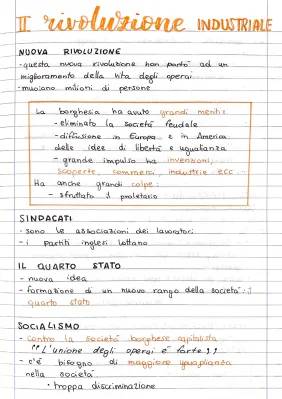 II rivoluzione INDUSTRIALE
NUOVA RIVOLUZIONE
- questa nuova rivoluzione non portò ad un
miglioramento della vita degli operai
- muoiono milioni di persone
La borghesia ha avuto grandi meriti:
- eliminato la società feudale
- diffusione in Europa e in America
delle idee di libertà e uguaglianza
- grande impulso ha invenzioni,
scoperte, commerci, industrie ecc
Ha anche grandi colpe:
- sfruttato il proletario
SINDACATI
- sono le associazioni dei lavoratori
- i partiti inglesi lottano
IL QUARTO STATO
- nuova idea
- formazione di un nuovo rango della società:
quarto stato
SOCIALISMO
- contro la società borghese capitalista
"L'unione degli operai è forte"
- c'è bisogno di maggiore uguaglianza
nella società
• troppa discriminazione